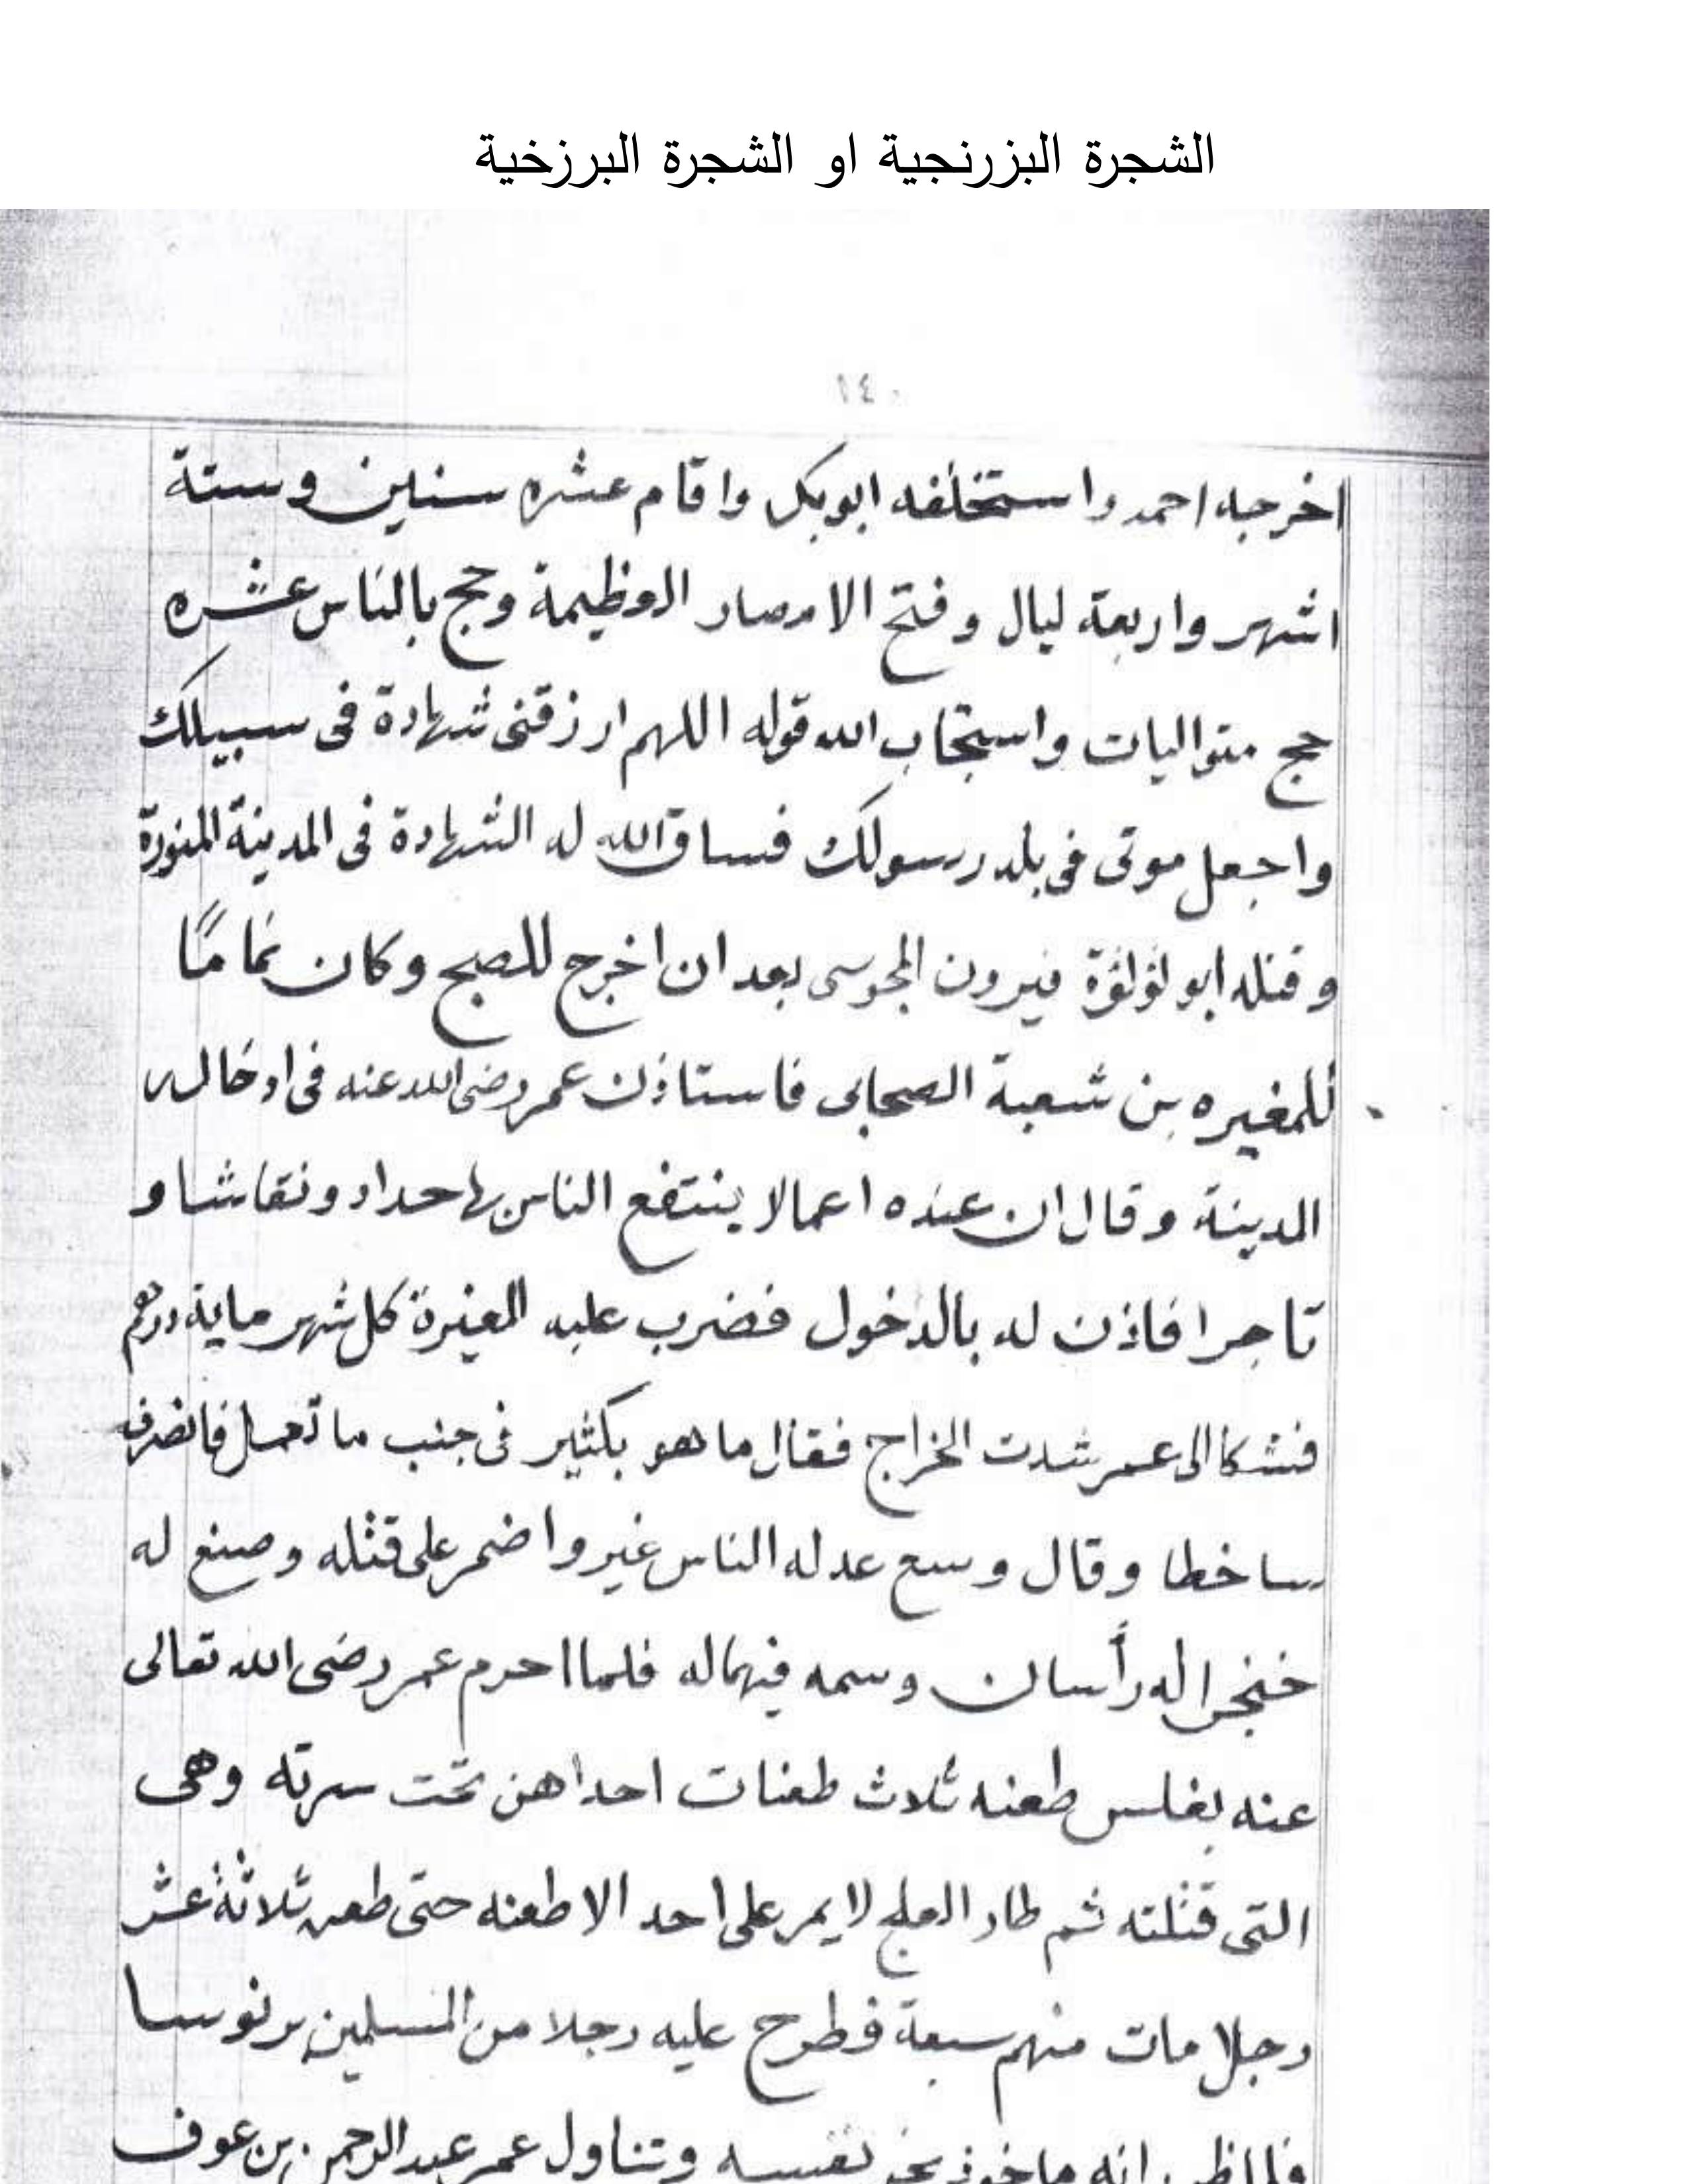 الشجرة البزرنجية او الشجرة البرزخية
١٤٠
اخرجه احمد واستخلفه ابوبكر واقام عشره سنين وستة
اشهر واربعة ليال وفتح الامصار الوظيمة وحج بالناس عشره
حج متواليات واستجاب الله قوله اللهم ارزقنى شهادة فى سبيلك
واجعل موتى فى بلد رسولك فساق الله له الشهادة فى المدينة المنورة
وقتله ابو لؤلؤة فيرون المجوسى بعد ان اخرج للصبح وكان
للمغيره بن شعبة الصحابى فاستاذن عمر رضى الله عنه فى ادخاله
المدينة وقال ان عنده اعمالا ينتفع الناس بها حداد ونقاشا و
تاجرا فاذن له بالدخول فضرب عليه المغيرة كل شهر ماية درهم
فشكا الى عمر شدت الخراج فقال ما هو بكثير فى جنب ما تعمل فانصرف
ساخطا وقال وسع عدله الناس غير واضمر على قتله وصنع له
خنجرا له رأسان وسمه فلما احرم عمر رضى الله تعالى
عنه بغلس طعنه ثلاث طعنات احداهن تحت سرته وهى
التى قتلته ثم طار العلج لا يمر على احد الا طعنه حتى طعن ثلاثة عشر
رجلا مات منهم سبعة فطرح عليه رجلا من المسلمين برنوسا
انه نفسه وتناول عمر عبد الرحمن بن عوف